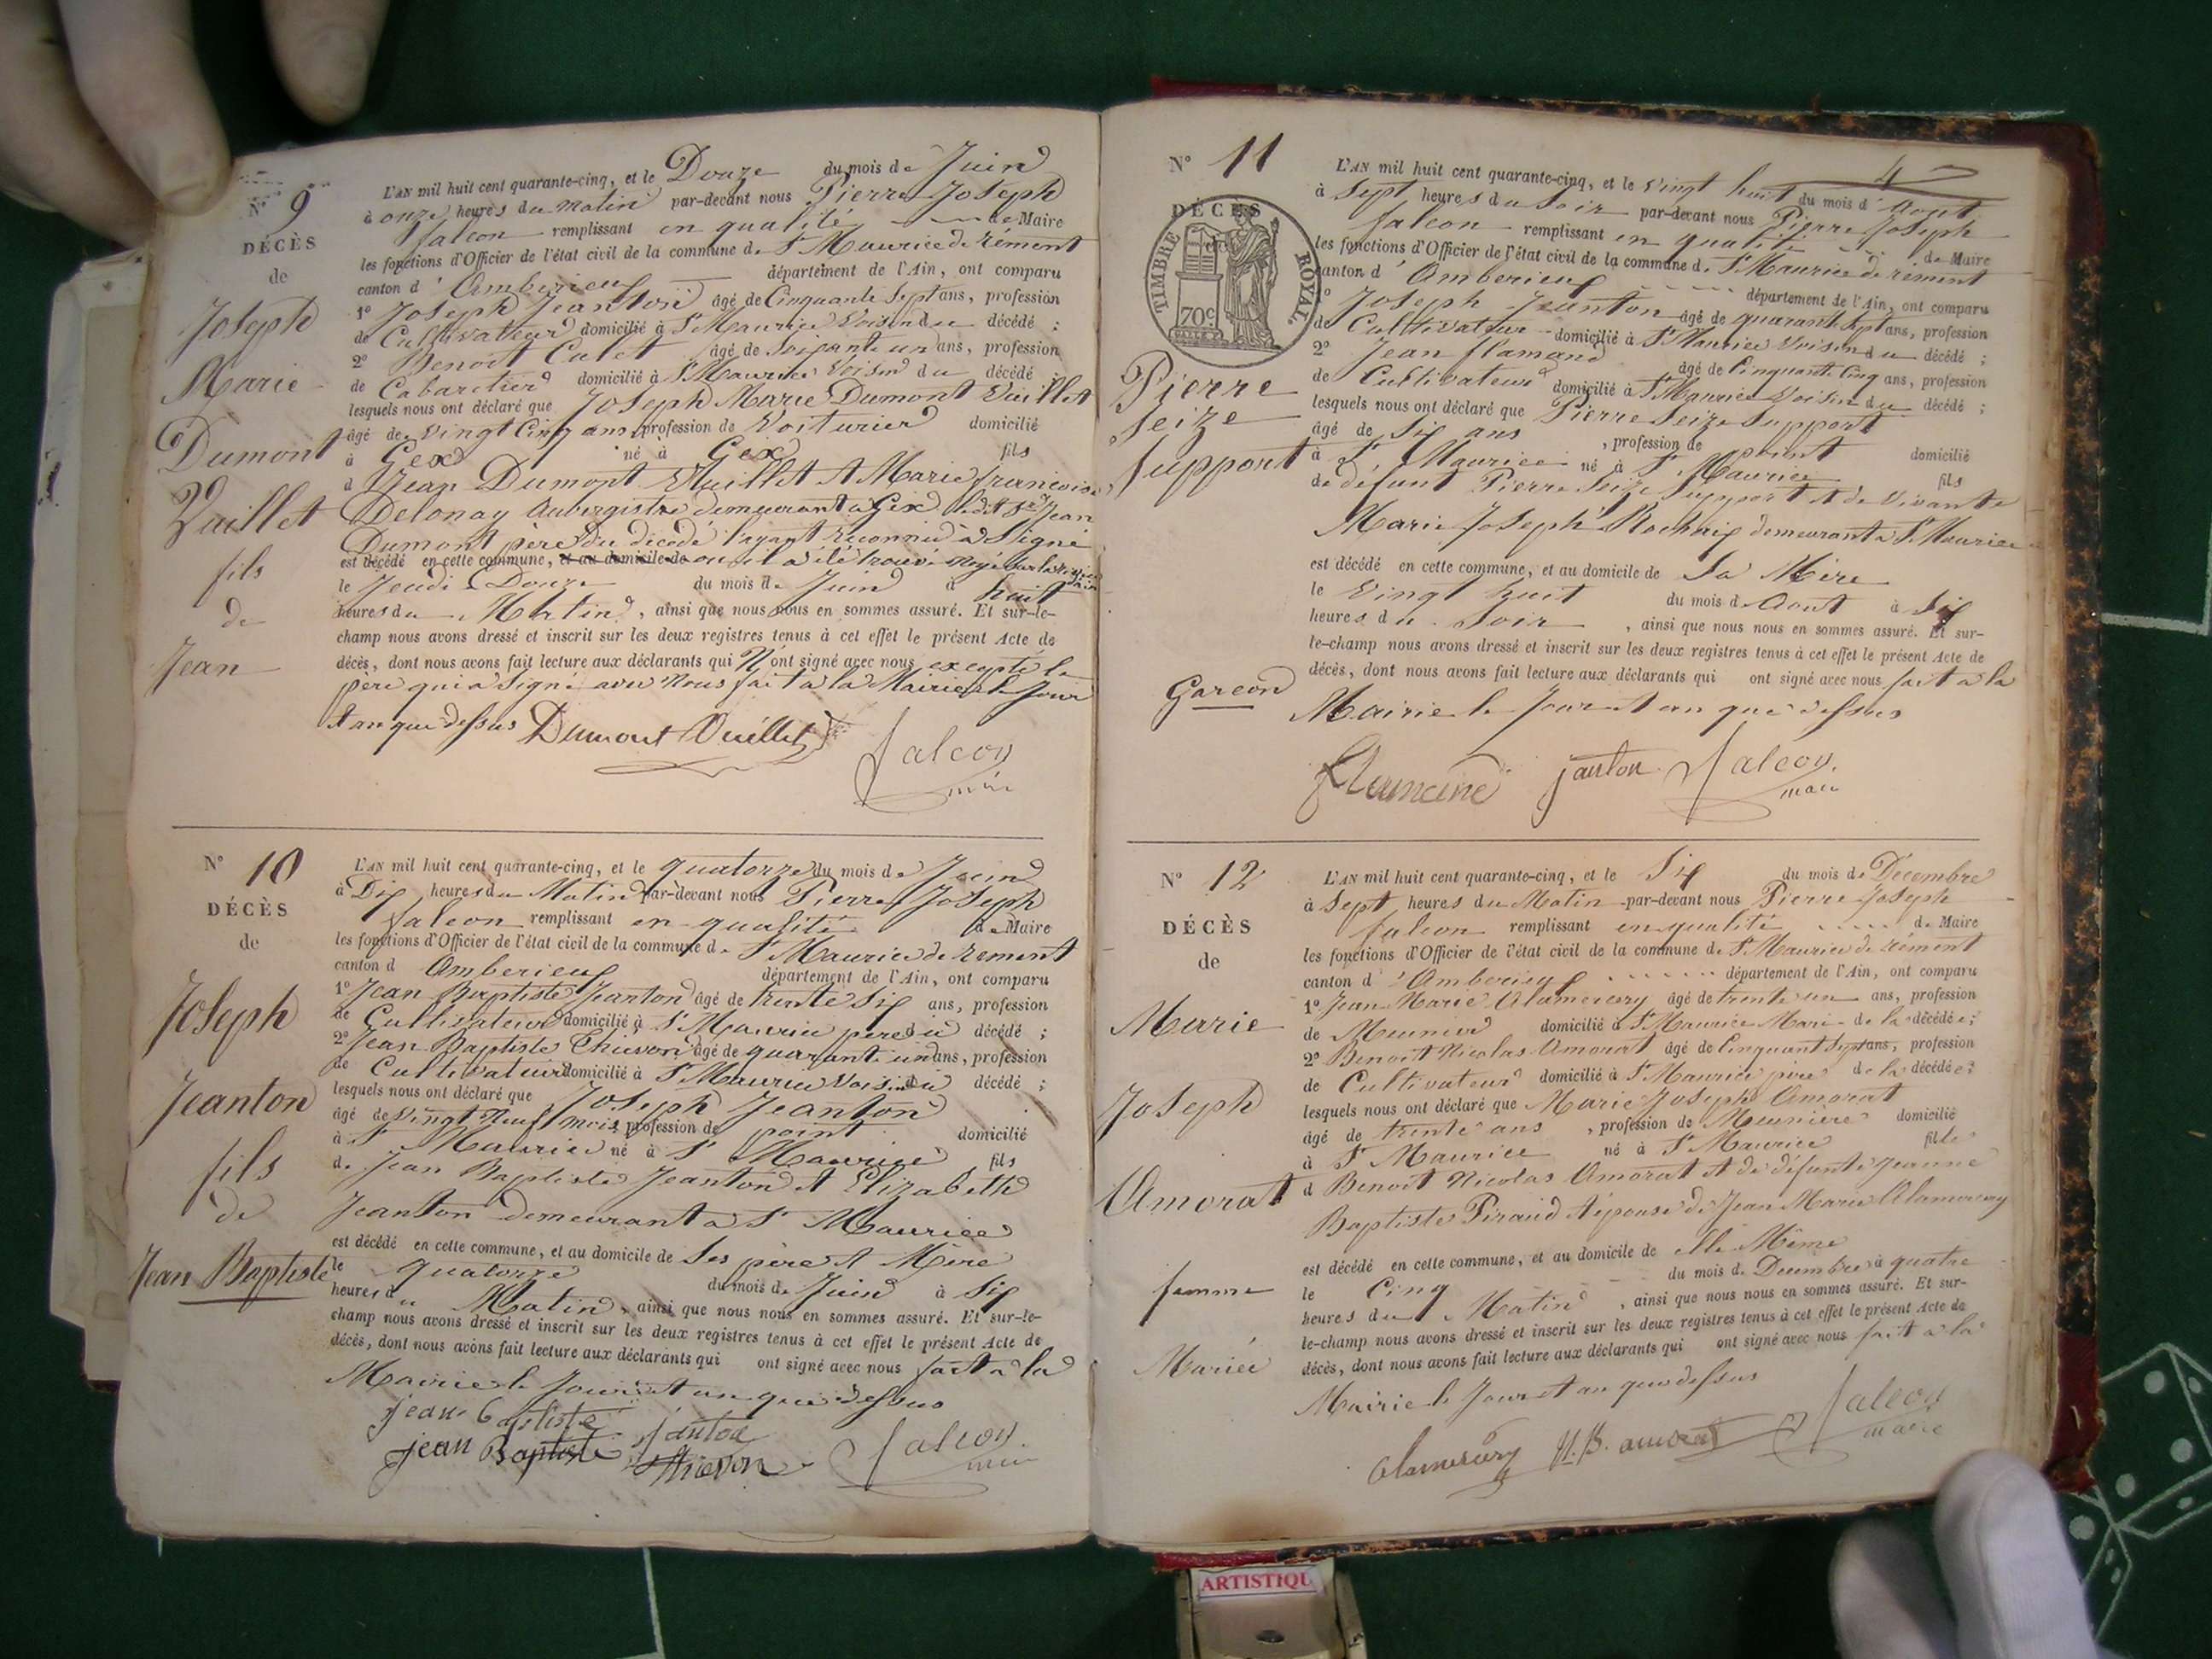 N° 9
DÉCÈS
de
Joseph
Marie
Dumont
Vuillet
fils
de
Jean
L'AN mil huit cent quarante-cinq, et le Douze du mois de Juin
à onze heures du matin par-devant nous Pierre Joseph
falcon remplissant en qualité de Maire
les fonctions d'Officier de l'état civil de la commune de St Maurice de rément
canton d'Amberieux département de l'Ain, ont comparu
1° Joseph Jeanton âgé de Cinquante Sept ans, profession
de Cultivateur domicilié à St Maurice Voisin du décédé ;
2° Benoit Culet âgé de Soixante un ans, profession
de Cabaretier domicilié à St Maurice Voisin du décédé ;
lesquels nous ont déclaré que Joseph Marie Dumont Vuillet
âgé de Vingt Cinq ans, profession de Voiturier domicilié
à Gex né à Gex fils
d Jean Dumont Vuillet et Marie françoise
Delonay Aubergiste demeurant à Gex le dit Sr Jean
Dumont père du décédé l'ayant reconnu à Signé
est décédé en cette commune, et au domicile de ou il a été trouvé Noyé
le Jeudi Douze du mois de Juin à huit
heures du Matin, ainsi que nous nous en sommes assuré. Et sur-le-
champ nous avons dressé et inscrit sur les deux registres tenus à cet effet le présent Acte de
décès, dont nous avons fait lecture aux déclarants qui N'ont signé avec nous excepté le
père qui a Signé avec Nous fait à la Mairie le Jour
et an que dessus Dumont Vuillet falcon
maire
N° 10
DÉCÈS
de
Joseph
Jeanton
fils
de
Jean Baptiste
L'AN mil huit cent quarante-cinq, et le quatorze du mois de Juin
à Dix heures du Matin par-devant nous Pierre Joseph
falcon remplissant en qualité de Maire
les fonctions d'Officier de l'état civil de la commune de St Maurice de rement
canton d Amberieux département de l'Ain, ont comparu
1° Jean Baptiste Jeanton âgé de trente Six ans, profession
de Cultivateur domicilié à St Maurice père du décédé ;
2° Jean Baptiste Thievon âgé de quarante un ans, profession
de Cultivateur domicilié à St Maurice Voisin du décédé ;
lesquels nous ont déclaré que Joseph Jeanton
âgé de Vingt Neuf mois, profession de point domicilié
à St Maurice né à St Maurice fils
de Jean Baptiste Jeanton et Elizabeth
Jeanton demeurant à St Maurice
est décédé en cette commune, et au domicile de Ses père et Mère
le quatorze du mois de Juin à Six
heures du Matin, ainsi que nous nous en sommes assuré. Et sur-le-
champ nous avons dressé et inscrit sur les deux registres tenus à cet effet le présent Acte de
décès, dont nous avons fait lecture aux déclarants qui ont signé avec nous fait à la
Mairie le Jour et an que dessus
jean baptiste janton
jean Baptiste thievon falcon
maire
4
N° 11
DÉCÈS
de
TIMBRE ROYAL
70c
Pierre
Seize
Support
Garçon
L'AN mil huit cent quarante-cinq, et le Vingt huit du mois d'Aout
à Sept heures du Soir par-devant nous Pierre Joseph
falcon remplissant en qualité de Maire
les fonctions d'Officier de l'état civil de la commune de St Maurice de rément
canton d'Amberieux département de l'Ain, ont comparu
1° Joseph Jeanton âgé de quarante Sept ans, profession
de Cultivateur domicilié à St Maurice Voisin du décédé ;
2° Jean flamand âgé de Cinquante Cinq ans, profession
de Cultivateur domicilié à St Maurice Voisin du décédé ;
lesquels nous ont déclaré que Pierre Seize Support
âgé de Six ans, profession de point domicilié
à St Maurice né à St Maurice fils
de défunt Pierre Seize Support et de Vivante
Marie Joseph Rochaix demeurant à St Maurice
est décédé en cette commune, et au domicile de Sa Mère
le Vingt huit du mois d'Aout à Six
heures du Soir, ainsi que nous nous en sommes assuré. Et sur-
le-champ nous avons dressé et inscrit sur les deux registres tenus à cet effet le présent Acte de
décès, dont nous avons fait lecture aux déclarants qui ont signé avec nous fait à la
Mairie le Jour et an que dessus
flamand janton falcon
maire
N° 12
DÉCÈS
de
Marie
Joseph
Amorat
femme
Mariée
L'AN mil huit cent quarante-cinq, et le Six du mois de Décembre
à Sept heures du Matin par-devant nous Pierre Joseph
falcon remplissant en qualité de Maire
les fonctions d'Officier de l'état civil de la commune de St Maurice de rément
canton d'Amberieux département de l'Ain, ont comparu
1° Jean Marie Alamercery âgé de trente un ans, profession
de Meunier domicilié à St Maurice Mari de la décédée ;
2° Benoit Nicolas Amorat âgé de Cinquant Sept ans, profession
de Cultivateur domicilié à St Maurice père de la décédée ;
lesquels nous ont déclaré que Marie Joseph Amorat
âgé de trente ans, profession de Meunière domicilié
à St Maurice né à St Maurice fille
d Benoit Nicolas Amorat et de défunte Jeanne
Baptiste Piraud et épouse de Jean Marie Alamercery
est décédé en cette commune, et au domicile de elle Même
le Cinq du mois de Décembre à quatre
heures du Matin, ainsi que nous nous en sommes assuré. Et sur-
le-champ nous avons dressé et inscrit sur les deux registres tenus à cet effet le présent Acte de
décès, dont nous avons fait lecture aux déclarants qui ont signé avec nous fait à la
Mairie le Jour et an que dessus
alamercery N. B. amorat falcon
maire
ARTISTIQU